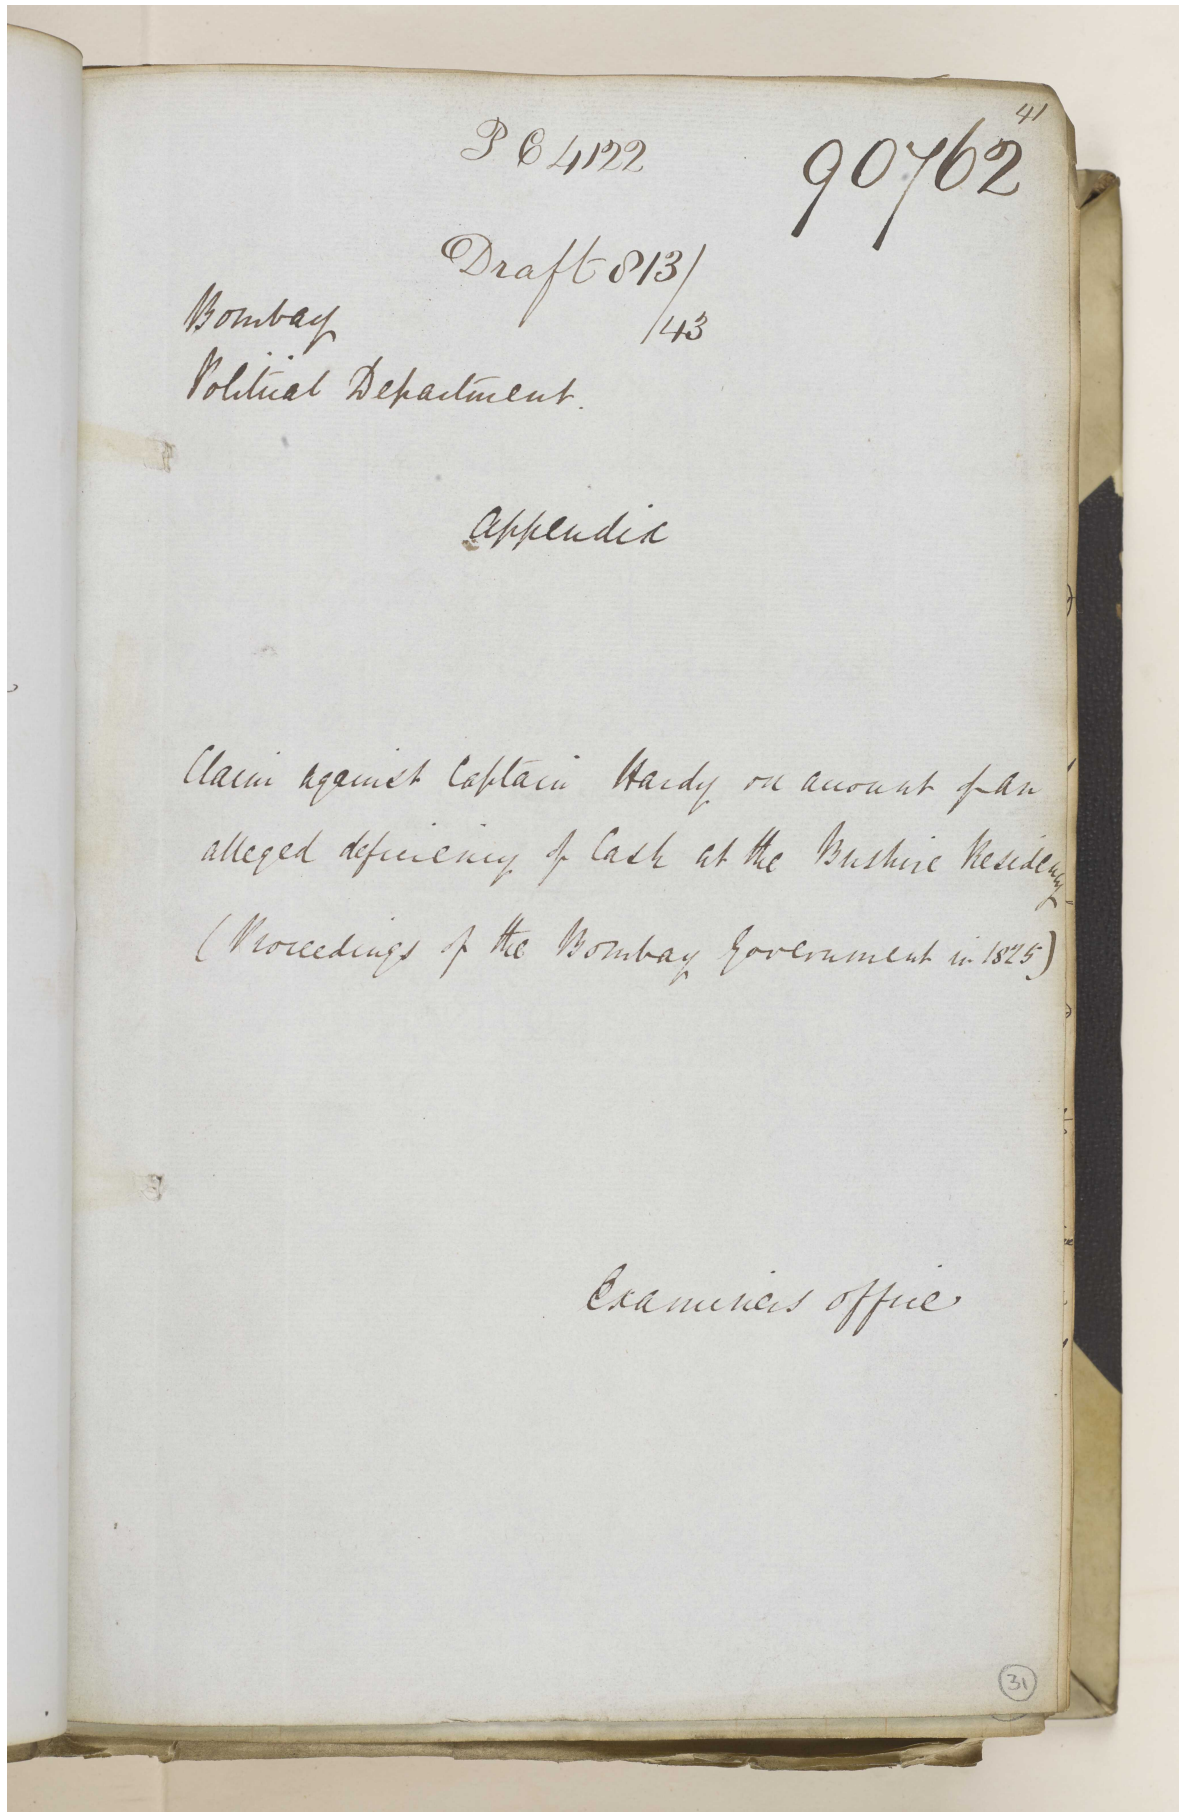 41
P C 4122
90762
Draft 813/
/43
Bombay
Political Department.
Appendix
Claim against Captain Hardy on account of an
alleged deficiency of Cash at the Bushire Residency
(Proceedings of the Bombay Government in 1825)
Examiners office
31